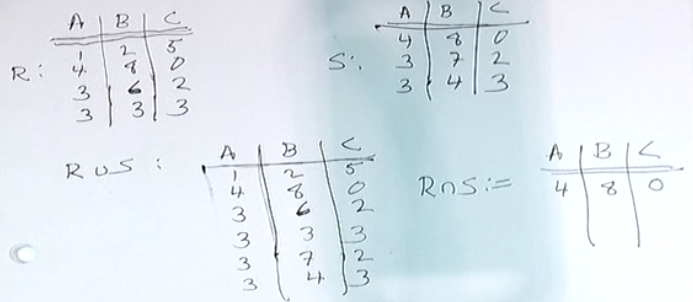 R: A B C
1 2 5
4 8 0
3 6 2
3 3 3
S: A B C
4 8 0
3 7 2
3 4 3
R∪S: A B C
1 2 5
4 8 0
3 6 2
3 3 3
3 7 2
3 4 3
R∩S:= A B C
4 8 0